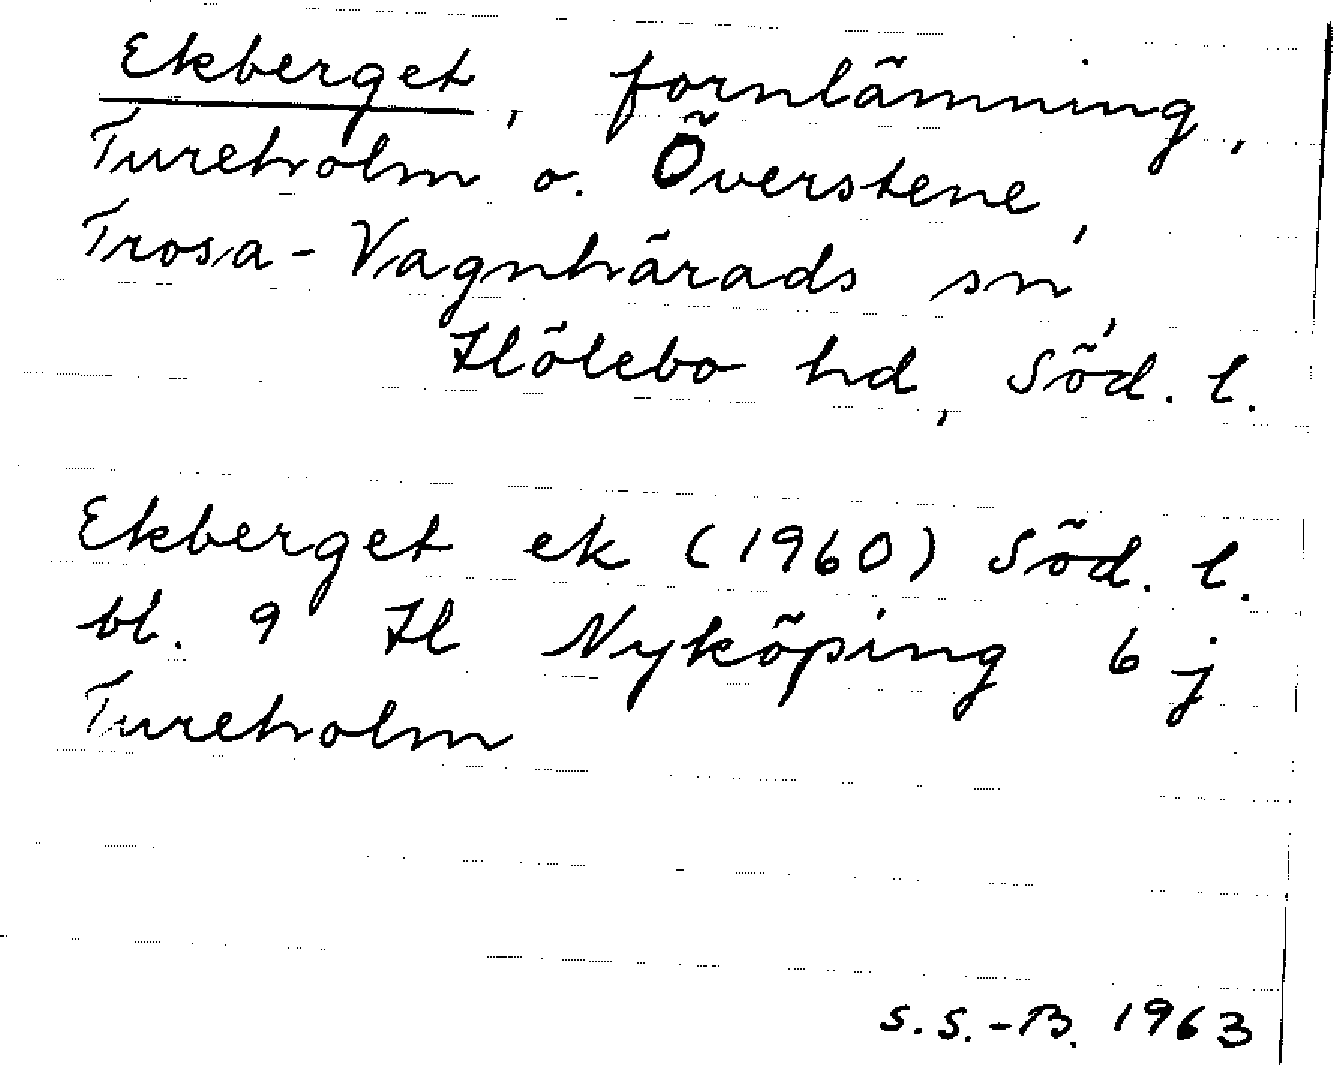 Ekberget, fornlämning,
Tureholm o. Överstene,
Trosa-Vagnhärads sn,
Hölebo hd, Söd. l.
Ekberget ek (1960) Söd. l.
bl. 9 H Nyköping 6 j
Tureholm
S.S.-B. 1963